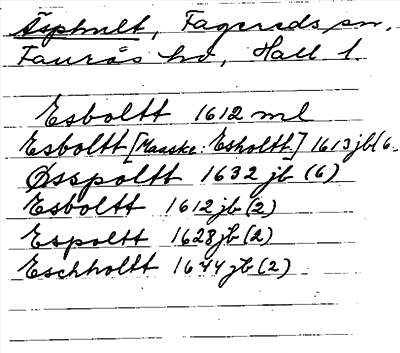 Äsphult, Fagereds sn,
Faurås hd, Hall l.
Esboltt 1612 ml
Esboltt [Maaske: Esholtt] 1613 jb (6
Øsspoltt 1632 jb (6)
Esboltt 1612 jb (2)
Espoltt 1628 jb (2)
Eschholtt 1644 jb (2)